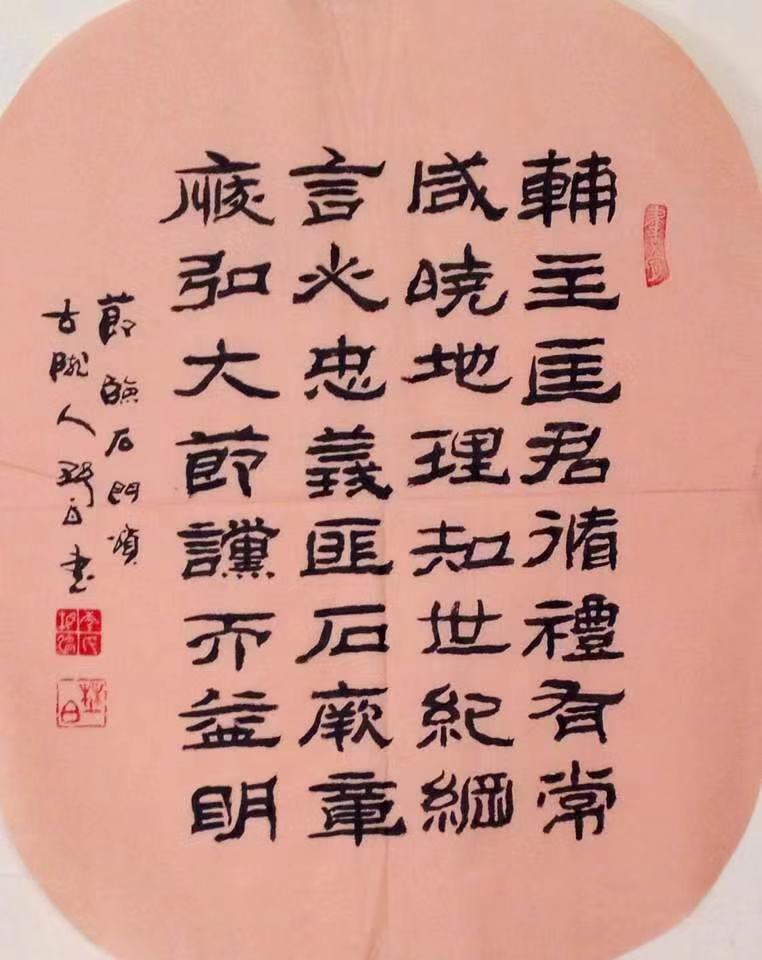 輔主匡君脩禮有常
咸曉地理知世紀綱
言必忠義匪石厥章
恢弘大節讜而益明
節臨石門頌
古隴人野白書
埜白